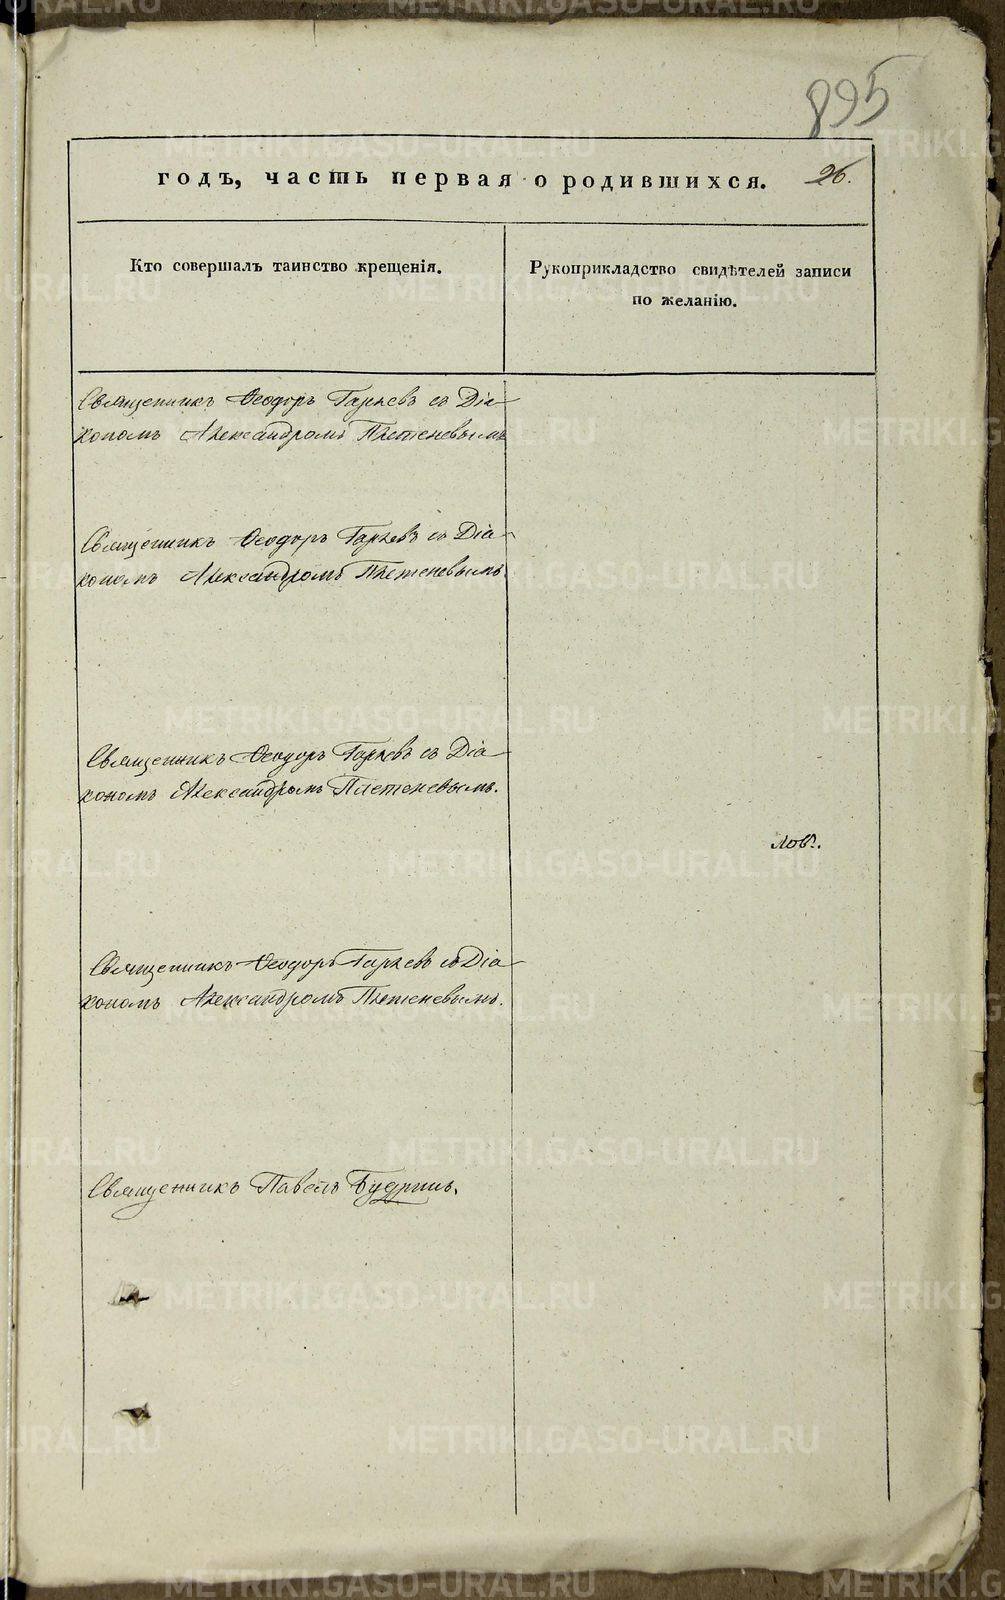 895
годъ, часть первая о родившихся. 26.
Кто совершалъ таинство крещенія.
Рукоприкладство свидѣтелей записи
по желанію.
Священникъ Ѳеодоръ Гаряевъ съ Діа-
кономъ Александромъ Плетеневымъ
Священникъ Ѳеодоръ Гаряевъ съ Діа-
кономъ Александромъ Плетеневымъ.
Священникъ Ѳеодоръ Гаряевъ съ Діа-
кономъ Александромъ Плетеневымъ.
лов.
Священникъ Ѳеодоръ Гаряевъ съ Діа-
кономъ Александромъ Плетеневымъ.
Священникъ Павелъ Будринъ.
METRIKI.GASO-URAL.RU